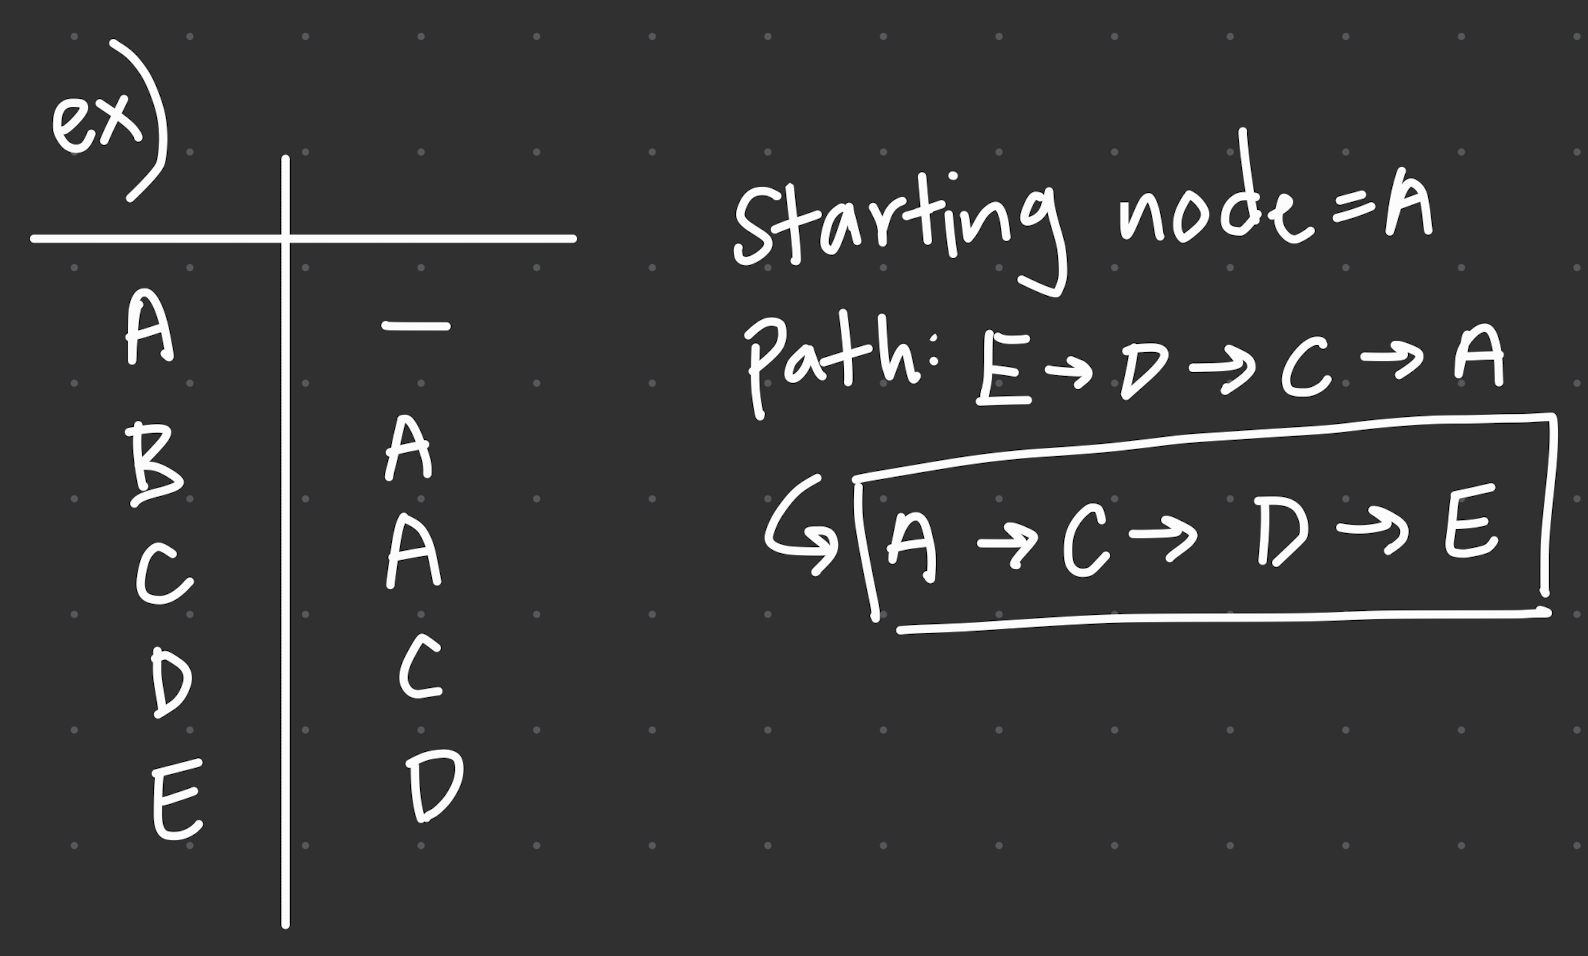 ex)
A —
B A
C A
D C
E D
Starting node = A
Path: E → D → C → A
↪ A → C → D → E